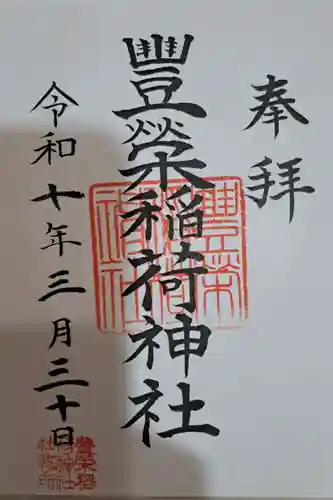 奉拝
豊榮稲荷神社
令和十年三月三十日
豊榮稲荷神社
豊榮稲荷神社社務所印